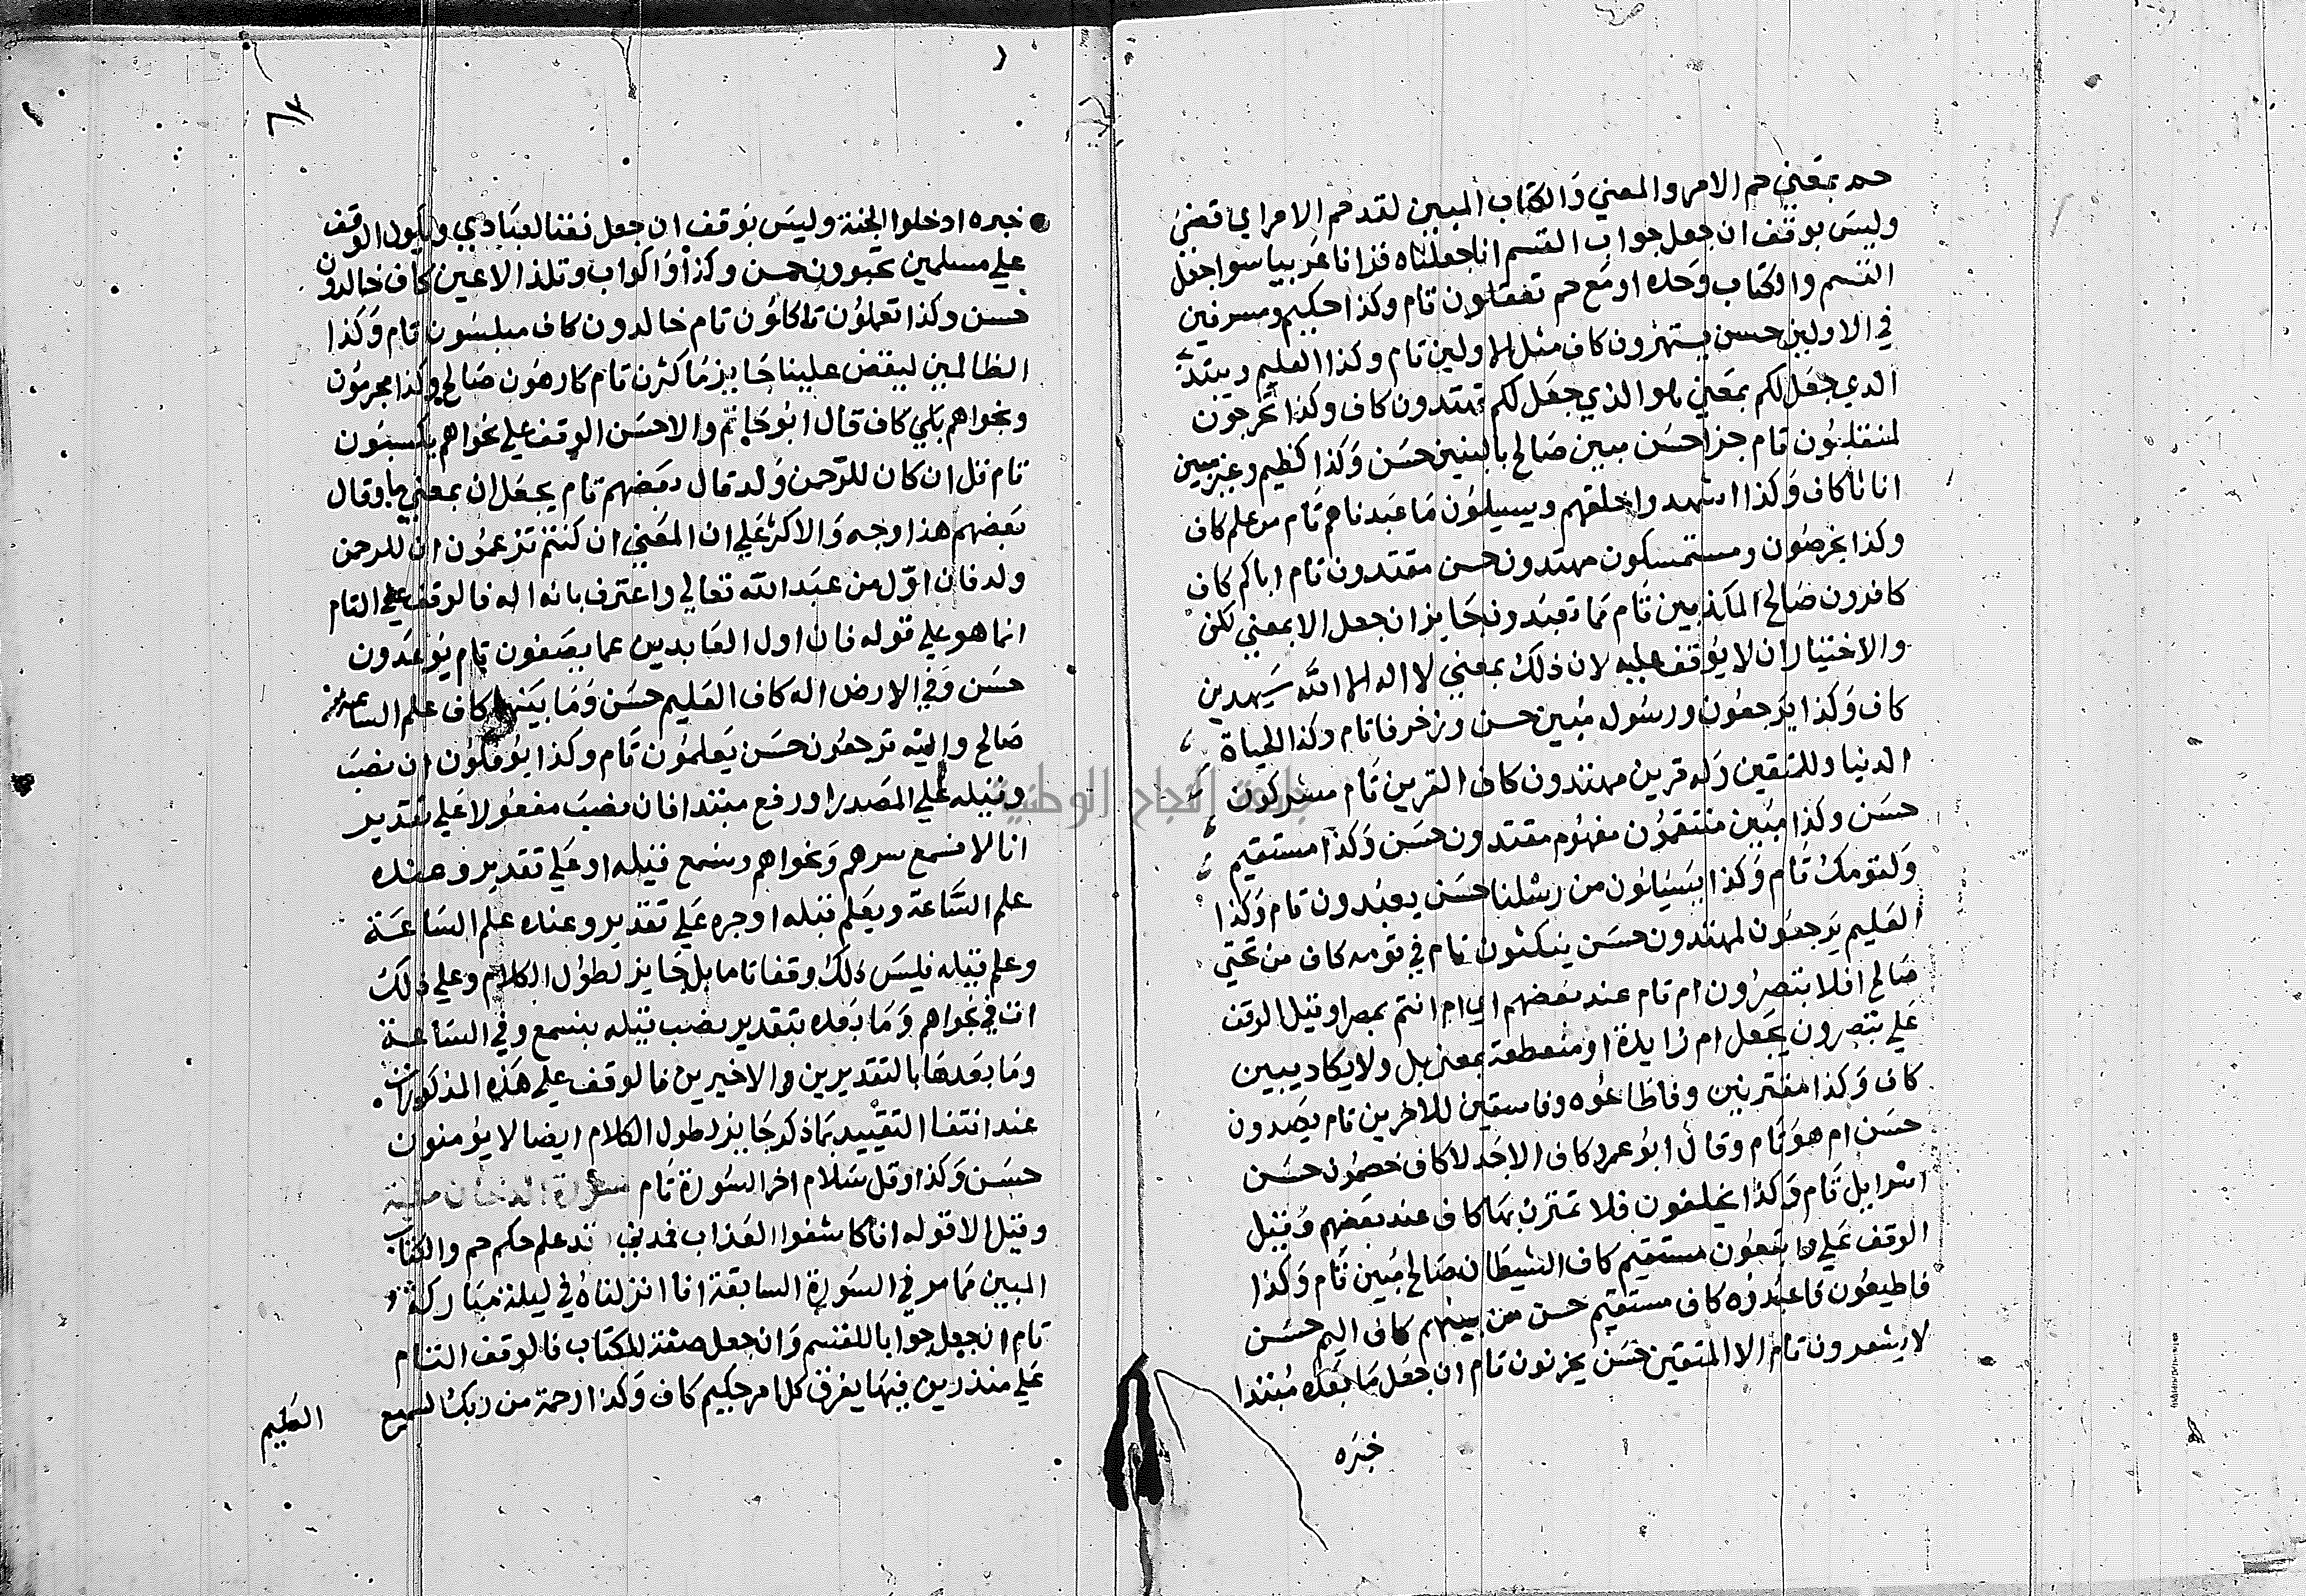 حم بمعني حم الامر والمعني والكتاب المبين لقد حم الامر اي قضي
وليس بوقف ان جعل جواب القسم انا جعلناه قرانا عربيا سوا جعل
القسم والكتاب وحده او مع حم تعقلون تام وكذا حكيم ومسرفين
في الاولين حسن يستهزون كاف مثل الاولين تام وكذا العليم
الذي جعل لكم بمعني هو الذي جعل لكم تهتدون كاف وكذا تخرجون
لمنقلبون تام جزا حسن مبين صالح بالبنين حسن وكذا كظيم وغير مبين
اناثا كاف وكذا اشهدوا خلقهم ويسيلون ما عبدناهم تام من علم كاف
وكذا يخرصون ومستمسكون مهتدون حسن مقتدون تام اباكم كاف
كافرون صالح المكذبين تام مما تعبدون جايز ان جعل الا بمعني لكن
والاختيار ان لا يوقف عليه لان ذلك بمعني لا اله الا الله سيهدين
كاف وكذا يرجعون ورسول مبين حسن وزخرفا تام وكذا الحياة
الدنيا وللمتقين وله قرين مهتدون كاف القرين تام مشتركون
حسن وكذا مبين منتقمون مفهوم مقتدون حسن وكذا مستقيم
ولقومك تام وكذا يسيلون من رسلنا حسن يعبدون تام وكذا
العليم يرجعون لمهتدون حسن ينكثون تام في قومه كاف من تحتي
صالح افلا تبصرون ام تام عند بعضهم اي ام انتم بصرا وقيل الوقف
علي تبصرون بجعل ام زايدة او منقطعة بمعني بل ولا يكاد يبين
كاف وكذا مقترنين وفاطاعوه وفاسقين للاخرين تام يصدون
حسن ام هو تام وقال ابو عمرو كاف الا جدلا كاف خصمون حسن
اسرايل تام وكذا يخلفون فلا تمترن بها كاف عند بعضهم وقيل
الوقف علي واتبعون مستقيم كاف الشيطان صالح مبين تام وكذا
فاطيعون فاعبدوه كاف مستقيم حسن من بينهم كاف اليم حسن
لا يشعرون تام الا المتقين حسن يحزنون تام ان جعل ما بعده مبتدا
خبره
خبره ادخلوا الجنة وليس بوقف ان جعل نعتا لعبادي ويكون الوقف
علي مسلمين تحبرون حسن وكذا واكواب وتلذ الاعين كاف خالدون
حسن وكذا تعملون تاكلون تام خالدون كاف مبلسون تام وكذا
الظالمين ليقض علينا جايز ماكثون تام كارهون صالح وكذا مجرمون
ونجواهم بلي كاف قال ابو حاتم والاحسن الوقف علي نجواهم يكتبون
تام قل ان كان للرحمن ولد قال بعضهم تام بجعل ان بمعني ما وقال
بعضهم هذا وجه والاكثر علي ان المعني ان كنتم تزعمون ان للرحمن
ولد فان اول من عبد الله تعالي واعترف بانه اله فالوقف علي التام
انما هو علي قوله فان اول العابدين عما يصفون تام يوعدون
حسن وفي الارض اله كاف العليم حسن وما بينهما كاف علم الساعة
صالح واليه ترجعون حسن يعلمون تام وكذا يوفكون ان نصب
وقيله علي المصدر او رفع مبتدا فان نصب مفعولا علي تقدير
انا لا نسمع سرهم ونجواهم ونسمع قيله او علي تقدير وعنده
علم الساعة ويعلم قيله او جره علي تقدير وعنده علم الساعة
وعلم قيله فليس ذلك وقفا تاما بل جايز لطول الكلام وعلي ذلك
انت في نجواهم وما بعده بتقدير نصب قيله بنسمع وفي الساعة
وما بعدها بالتقديرين والاخيرين فالوقف علي هذه المذكورات
عند انتفا التقييد بما ذكر جايز لطول الكلام ايضا لا يومنون
حسن وكذا وقل سلام اخر السورة تام سورة الدخان مكية
وقيل الا قوله انا كاشفوا العذاب فمدني قد علم حكم حم والكتاب
المبين مما مر في السورة السابقة انا انزلناه في ليلة مباركة
تام ان جعل جوابا للقسم وان جعل صفة للكتاب فالوقف التام
علي منذرين فيها يفرق كل امر حكيم كاف وكذا رحمة من ربك السميع
العليم
جامعة النجاح الوطنية